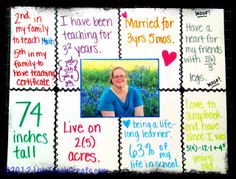 2nd in my
family to
teach Math
5th in my family
to have teaching
certificate.
I have been
teaching for
3² years.
Married for
3yrs 5mos.
WOOF!
Have a
heart for
my friends
with 2(4)
legs.
WOOF!
74
inches
tall
Live on
2(5)
acres.
being a life-
long learner.
63% of
my life
in school.
LOVE to
scrapbook
and have
since I was
years old.